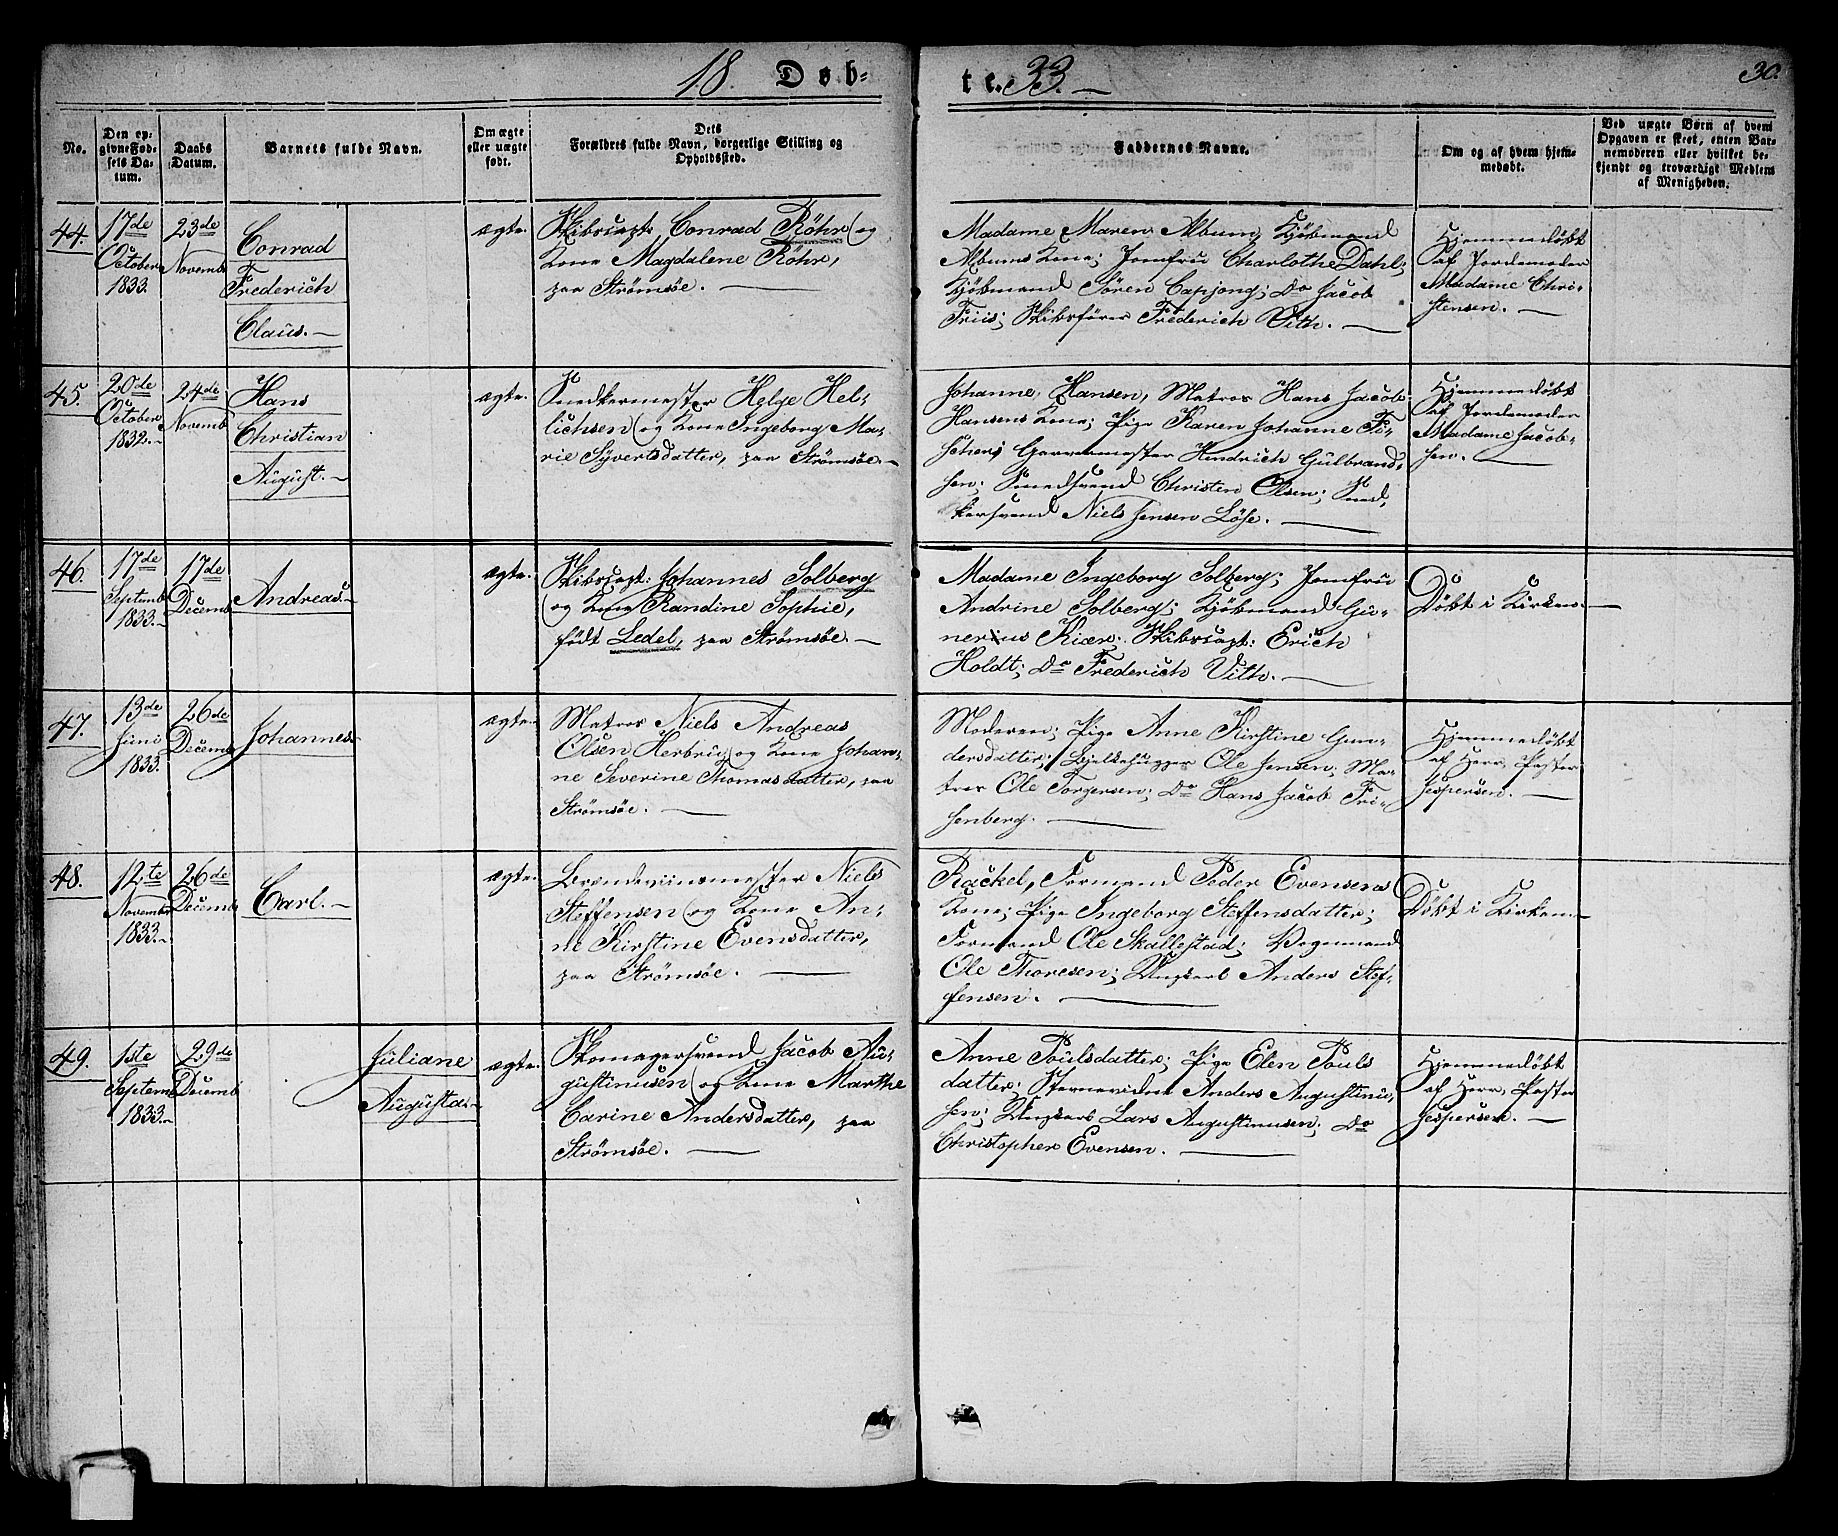 18. Døb=
te. 33. –
30.
No.
Den op=
givne Fød=
sels Da=
tum.
Daabs
Datum.
Barnets fulde Navn.
Om ægte
eller uægte
født.
Dets
Forældres fulde Navn, borgerlige Stilling og
Opholdssted.
Faddernes Navne.
Om og af hvem hjem=
medøbt.
Ved uægte Børn af hvem
Opgaven er skeet, enten Bar=
nemoderen eller hvilket be=
kjendt og troværdigt Medlem
af Menigheden.
44.
17de
October
1833.
23de
Novemb
Conrad
Frederich
Claus. –
ægte.
Skibscapt. Conrad Röhr (og
Kone Magdalene Röhr,
paa Strømsøe. –
Madame Maren Album, Kjöbmand
Albums Kone; Jomfru Charlothe Dahl;
Kjöbmand Sören Capjong; Do Jacob
Friis; Skibsförer Frederich Vith. –
Hjemmedöbt
af Jordemoder
Madame Chri-
stensen. –
45.
20de
October
1832. –
24de
Novemb
Hans
Christian
August. –
ægte.
Snedkermester Helge Hel-
lichsen (og Kone Ingeborg Ma-
rie Syvertsdatter, paa Strømsøe. –
Johanne Hansen, Matros Hans Jacob
Hansens Kone; Pige Karen Johanne Fi-
scher; Garvermester Hendrich Gulbrand-
sen; Smedsvend Christen Olsen; Sned-
kersvend Niels Jensen Löse. –
Hjemmedöbt
af Jordemoder
Madame Jacob-
sen. –
46.
17de
Septemb
1833. –
17de
Decemb
Andreas. –
ægte.
Skibscapt: Johannes Solberg
(og Kone Randine Sophie,
født Ledel, paa Strømsøe. –
Madame Ingeborg Solberg; Jomfru
Andrine Solberg; Kjöbmand Gu-
nerius Kiær. Skibscapt: Erich
Holdt; Do Frederich Vith. –
Döbt i Kirken. –
47.
13de
Juni
1833.
26de
Decemb
Johannes. –
ægte.
Matros Niels Andreas
Olsen Herbrug (og Kone Johan-
ne Severine Thomasdatter, paa
Strömsöe. –
Moderen; Pige Anne Kirstine Gun-
dersdatter; Bjelkehugger Ole Jensen; Ma-
tros Ole Torgersen; Do Hans Jacob Fri-
senberg. –
Hjemmedöbt
af Herr, Pastor
Jespersen. –
48.
12te
Novemb
1833. –
26de
Decemb
Carl. –
ægte.
Brændeviinsmester Niels
Steffensen (og Kone An-
ne Kirstine Evensdatter,
paa Strømsøe. –
Rackel, Formand Peder Evensens
Kone; Pige Ingeborg Steffensdatter;
Formand Ole Skallestad; Vognmand
Ole Thoresen; Ungkarl Anders Stef-
fensen. –
Döbt i Kirken –
49.
1ste
Septemb
1833. –
29de
Decemb
Juliane
Augusta. –
ægte.
Skomagersvend Jacob Au-
gustinusen (og Kone Marthe
Carine Andersdatter, paa
Strømsøe. –
Anne Poulsdatter; Pige Elen Pouls
datter; Anders Augustinu-
sen; Ungkarl Lars Augustinusen; Do
Christopher Evensen. –
Hjemmedöbt
af Herr, Pastor
Jespersen. –